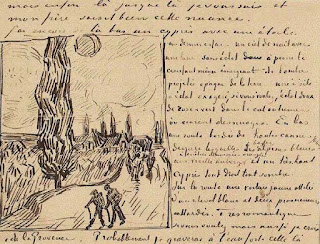 mais enfin là jusque là je vous suis et
mon frère sent bien cette nuance.
J'ai encore de là bas un cyprès avec une étoile
un dernier essai – un ciel de nuit avec
une lune sans éclat à peine le
croissant mince émergeant de l'ombre
projetée opaque de la terre – une étoile
à éclat exagéré, si vous voulez, éclat doux
de rose & vert dans le ciel outremer
où courent des nuages. En bas
une route bordée de hautes cannes
derrière lesquelles les basses Alpines bleues
une vieille auberge à fenêtres illuminées orangée et un très haut
cyprès tout droit tout sombre
sur la route une voiture jaune attelée
d'un cheval blanc et deux promeneurs
attardés. Très romantique
si vous voulez mais aussi je crois
de la Provence. Probablement je graverai à l'eau forte celle là